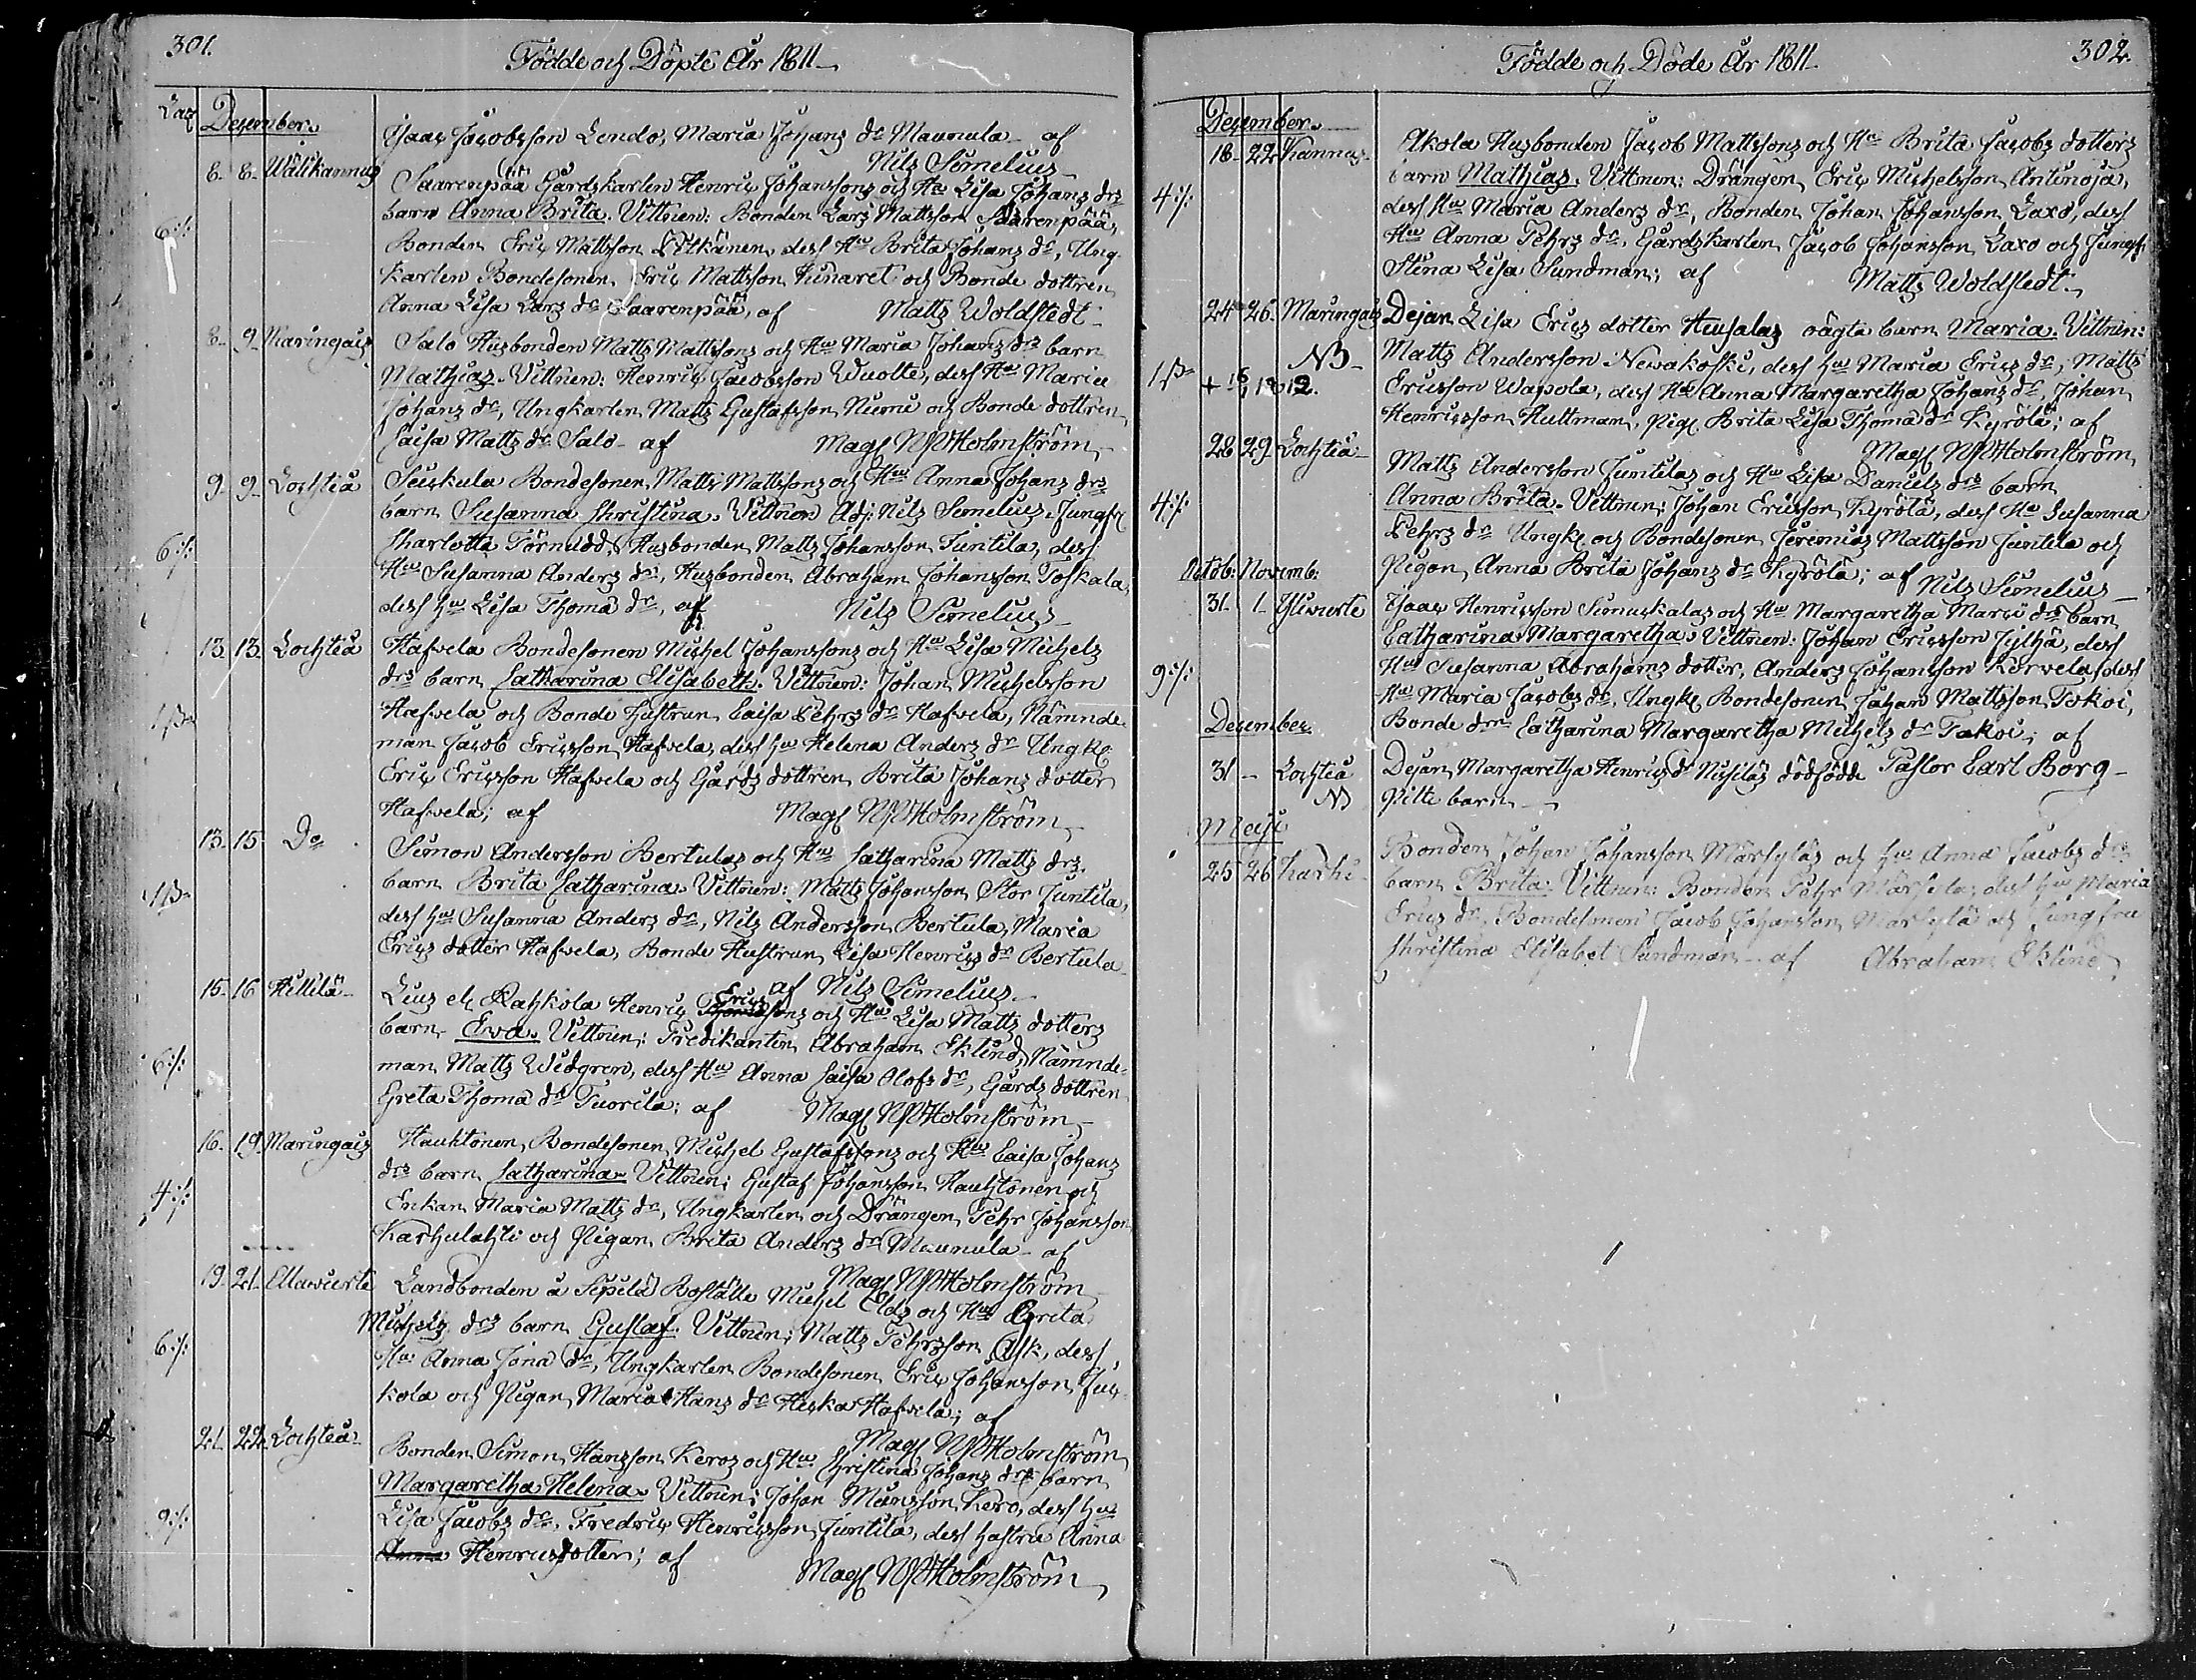 301.
Födde och Döpte År 1811
Desember.
Isaac Jacobsson Lendo, Maria Johans dr Maunula af
Nils Simelius
8. 8. Wälikannus Saarenpää Gårdskarlen Henric Johanssons och Hu Lisa Johans drs
barn Anna Brita. Vittnen: Bonden Lars Mattsson Saarenpää,
6:/:
Bonden Eric Mattsson Pölkänen, dess Hu Brita Johans dr, Ung
karlen Bondesonen Eric Mattsson Kunaret och Bonde dottren
Anna Lisa Lars dr Saarenpää, af Matts Woldstedt
8. 9. Maringais Salo Husbonden Matts Mattssons och Hu Maria Johans drs barn
Mathias. Vittnen: Henric Jacobsson Wuolle, dess Hu Maria
Johans dr, Ungkarlen Matts Gustafsson Numi och Bonde dottren
Caisa Matts dr Salo af Mag NP Holmström
9. 9. Lochteå Siirkula Bondesonen Matts Mattssons och Hu Anna Johans drs
barn Susanna Christina. Vittnen Adj: Nils Simelius, Jungfr
6:/:
Charlotta Törnudd, Husbonden Matts Johansson Juntila, dess
Hu Susanna Anders dr, Husbonden Abraham Johansson Toskala,
dess hu Lisa Thoma dr, af Nils Simelius
13. 13. Lochteå Hafvela Bondesonen Michel Johanssons och Hu Lisa Michels
drs barn Catharina Elisabeth. Vittnen: Johan Michelsson
Hafvela och Bonde hustrun Caisa Pehrs dr Hafvela, Nämnde
man Jacob Ericsson Hafvela, dess hu Helena Anders dr Ungk
Eric Ericsson Hafvela och Gårds dottren Brita Johans dotter
Hafvela; af Mag NP Holmström
13. 15. Do Simon Andersson Bertulas och Hu Catharina Matts drs
barn Brita Catharina. Vittnen: Matts Johansson Stor Juntila,
dess hu Susanna Anders dr, Nils Andersson Bertula, Maria
Erics dotter Hafvela, Bonde Hustrun Lisa Henrics dr Bertula
af Nils Simelius
15. 16 Hillilä Lius el. Rahkola Henric Erics sons och Hu Lisa Matts dotters
barn Ewa. Vittnen: Predikanten Abraham Eklind, Nämnde
6:/:
man Matts Widgren, dess Hu Anna Caisa Olofs dr, Gårds dottren
Greta Thoma dr Tuorila; af Mag NP Holmström
16. 19. Maringais Hauhtonen Bondesonen Michel Gustafssons och Hu Caisa Johans
drs barn Catharina. Vittnen: Gustaf Johansson Hauhtonen och
4:/:
Enkan Maria Matts dr, Ungkarlen och Drängen Pehr Johansson
Karhulahti och Pigan Brita Anders dr Maunula af
Mag NP Holmström
19. 21. Ellawierte Landbonden å Sipilä Boställe Michel Elds och Hu Brita
Michels drs barn Gustaf. Vittnen: Matts Pehrsson Ask, dess
6:/:
Hu Anna Jona dr, Ungkarlen Bondesonen Eric Johansson Juc
kola och Pigan Maria Hans dr Hiska Hafvela; af
Mag NP Holmström
21. 22. Lochteå Bonden Simon Hansson Keros och Hu Christina Johans drs barn
Margaretha Helena. Vittnen: Johan Månsson Kero, dess hu
9:/:
Lisa Jacobs dr. Fredric Henricsson Juntila, dess hustru Anna
Henricsdotter; af Mag NP Holmström
Födde och Döde År 1811
302.
Desember.
18. 22 Kannus Akola Husbonden Jacob Mattssons och Hu Brita Jacobs dotters
barn Mathias. Vittnen: Drängen Eric Michelsson Antinoja,
4:/:
dess Hu Maria Anders dr, Bonden Johan Johansson Laxo, dess
Hu Anna Pehrs dr, Gårdskarlen Jacob Johansson Laxo och Jungfr
Stina Lisa Sundman; af Matts Woldstedt
24 26. Maringais Dejan Lisa Erics dotter Huusalas oägta barn Maria. Vittnen:
NB
Matts Andersson Newakoski, dess hu Maria Erics dr, Matts
Ericsson Wapola, dess Hu Anna Margaretha Johans dr, Johan
Henricsson Hultman, Pig. Brita Lisa Thoma dr Kyrölä; af
Mag NP Holmström
28 29. Lochteå Matts Andersson Juntilas och Hu Lisa Daniels drs barn
Anna Brita. Vittnen: Johan Ericsson Kyrölä, dess Hu Susanna
4:/:
Pehrs dr Ungk och Bondesonen Jeremias Mattsson Juntila och
Pigan Anna Brita Johans dr Kyrölä; af Nils Simelius
Octob: Novemb:
31. 1. Yliwierte Isaac Henricsson Simuskalas och Hu Margaretha Marci drs barn
Catharina Margaretha. Vittnen: Johan Ericsson Jylhä, dess
9:/:
Hu Susanna Abrahams dotter, Anders Johansson Korvela, dess
Hu Maria Jacobs dr, Ungk Bondesonen Johan Mattsson Tokoi,
Bonde drn Catharina Margaretha Michels dr Tokoi; af
Pastor Carl Borg
Desember
31 Lochteå Dejan Margaretha Henrics dr dödfödde
NB Pilte barn
Maji
25 26 Karhi Bonden Johan Johansson Märsyläs och hu Anna Jacobs drs
barn Brita. Vittnen: Bonden Pehr Märsylä, dess hu Maria
Erics dr. Bondesonen Jacob Johansson Märsylä och Jungfru
Christina Elisabet Sundman af Abraham Eklind